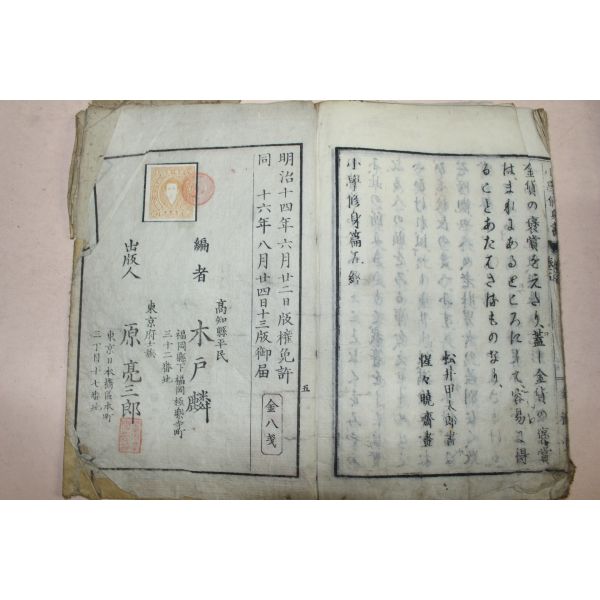 金貨の褒賞をえさり、蓋し金貨の褒賞
はまれにあるところにして容易に得
ることあたはざはものなり、
松井甲太郎書
惺々暁齋畫
小學修身篇五終
明治十四年六月廿二日版權免許
同 十六年八月廿四日十三版御届
五
金八戔
編者
高知縣平民
木戸麟
福岡縣下福岡極樂寺町
三十二番地
出版人
東京府士族
原亮三郎
東京日本橋區本町
三丁目十七番地